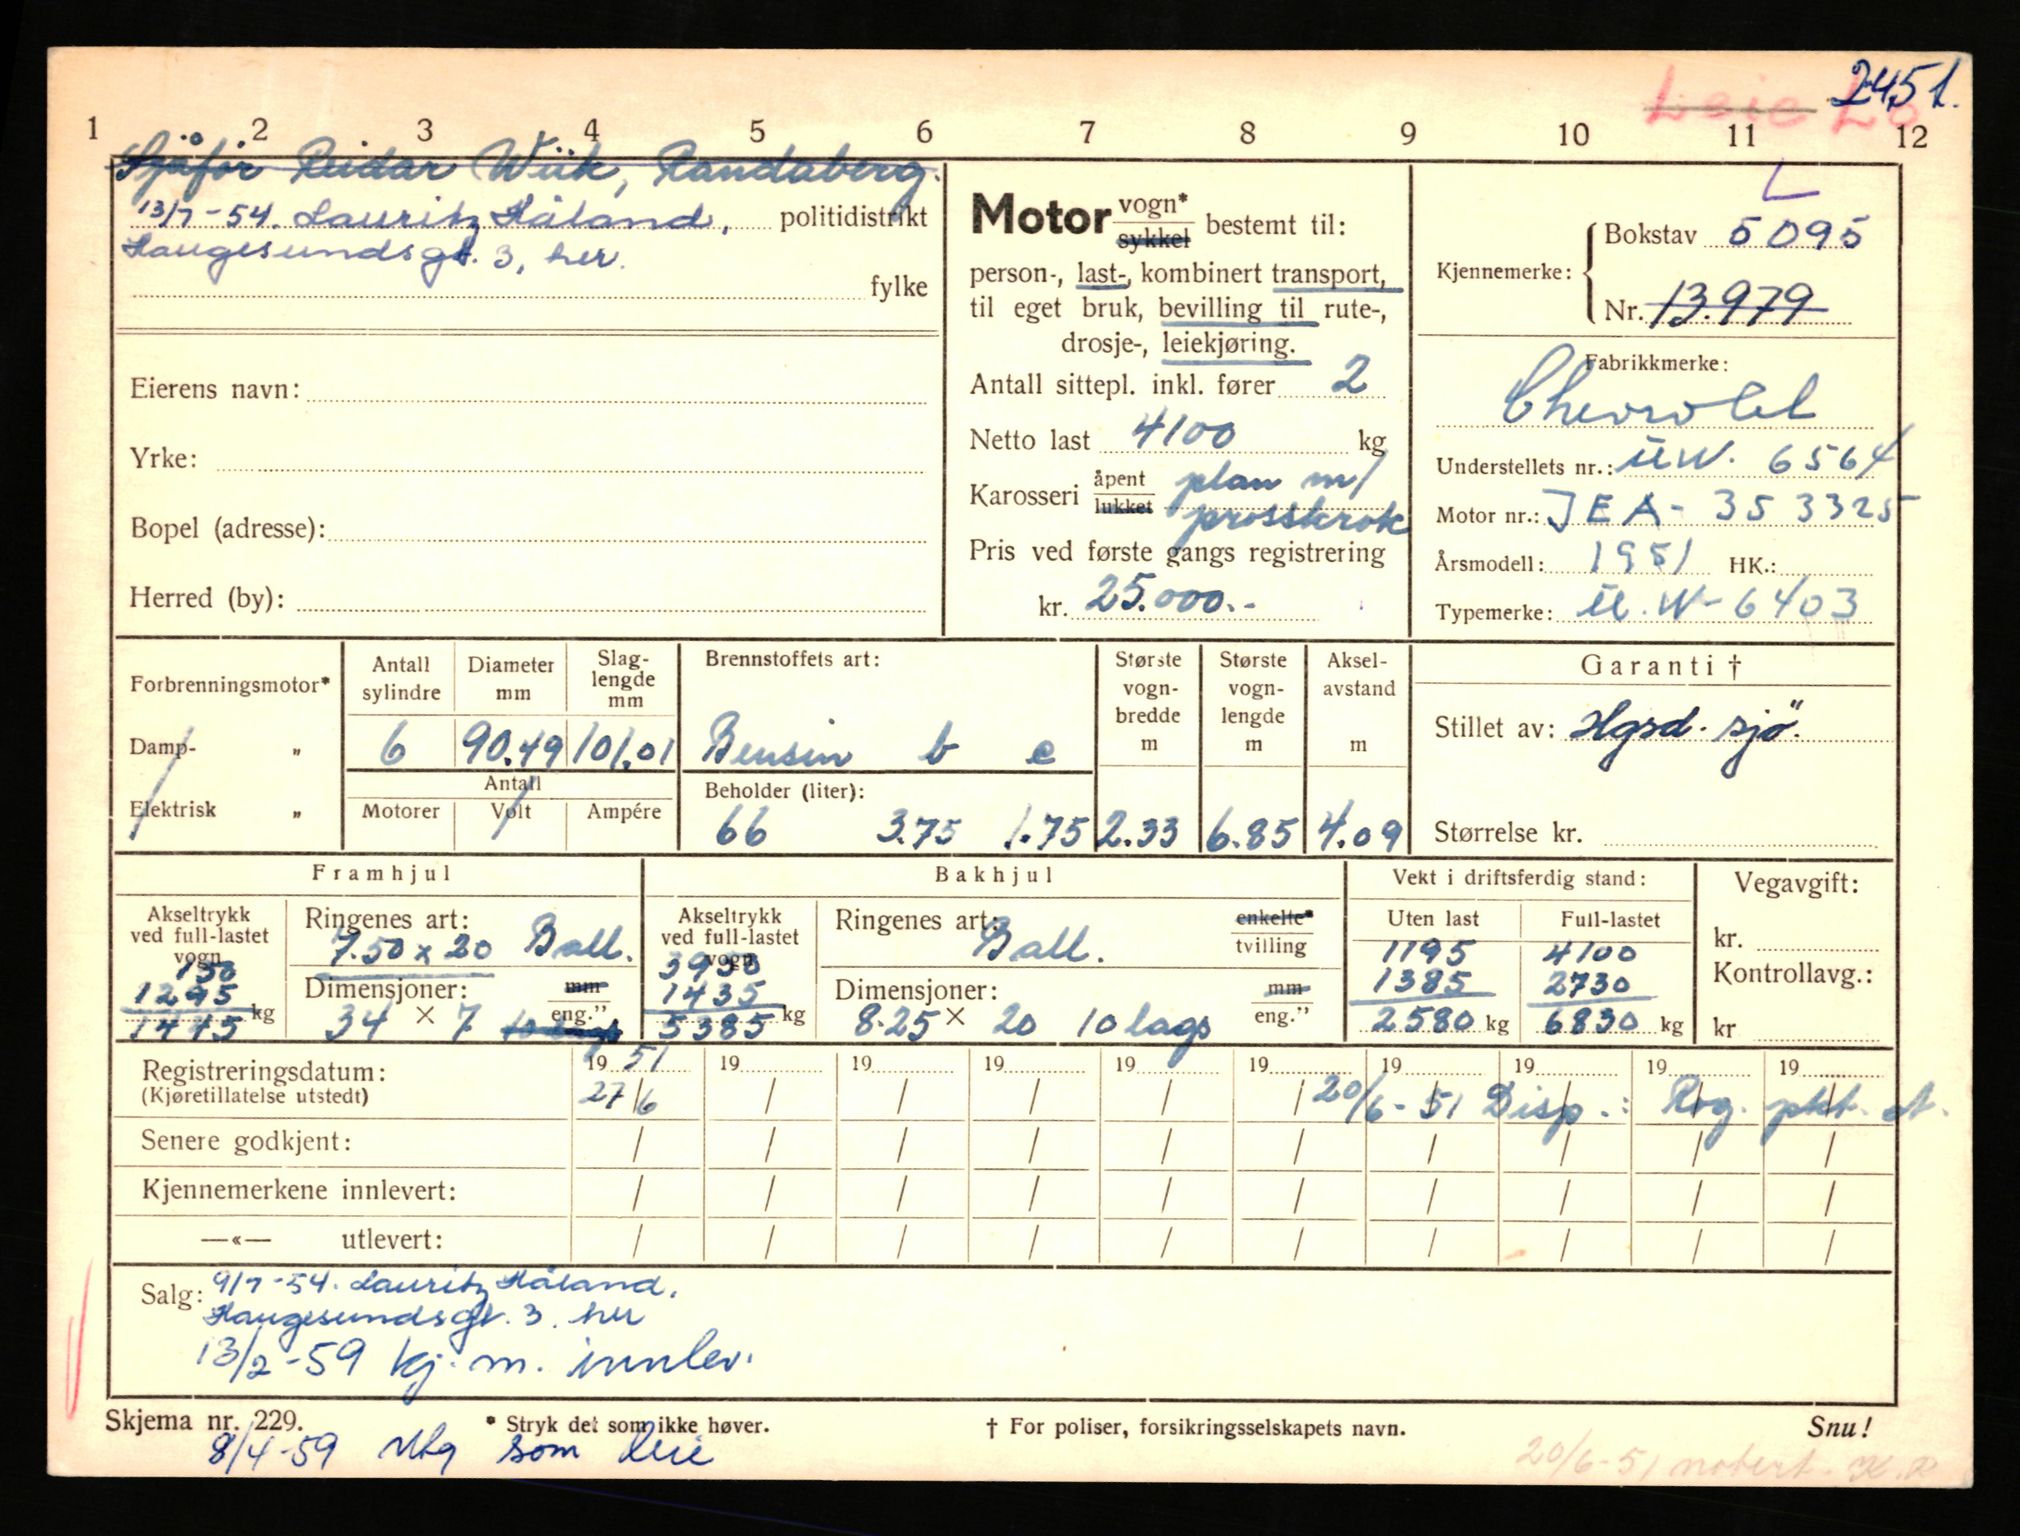 Leie Lø 245 t.
1 2 3 4 5 6 7 8 9 10 11 12
Sjåfør Reidar Wiik, Randaberg.
13/7-54. Lauritz Håland, politidistrikt
Haugesundsgt. 3, her.
fylke
Eierens navn:
Yrke:
Bopel (adresse):
Herred (by):
Motor vogn* sykkel bestemt til:
person-, last-, kombinert transport,
til eget bruk, bevilling til rute-,
drosje-, leiekjøring.
Antall sittepl. inkl. fører 2
Netto last 4100 kg
Karosseri åpent lukket plan m/
prosskrok
Pris ved første gangs registrering
kr. 25.000.-
L
Kjennemerke: Bokstav 5095
Nr. 13.979
Fabrikkmerke:
Chevrolet
Understellets nr.: ŪW. 6564
Motor nr.: JEA-353325
Årsmodell: 1951 HK.:
Typemerke: Ū.W-6403
Forbrenningsmotor*
Damp- „
Elektrisk „
Antall sylindre
Diameter mm
Slag-lengde mm
6 90.49 101.01
Antall
Motorer Volt Ampére
Brennstoffets art:
Bensin b e
Beholder (liter):
66 3.75 1.75
Største vogn-bredde m
2.33
Største vogn-lengde m
6.85
Aksel-avstand m
4.09
Garanti †
Stillet av: Hgsd. sjö.
Størrelse kr.
Framhjul
Akseltrykk ved full-lastet vogn
150
1295
1445 kg
Ringenes art:
7.50 x 20 Ball.
Dimensjoner: mm eng."
34 × 7 10 lags
Bakhjul
Akseltrykk ved full-lastet vogn
3950
1435
5385 kg
Ringenes art: enkelte* tvilling
Ball.
Dimensjoner: mm eng."
8.25 × 20 10 lags
Vekt i driftsferdig stand:
Uten last Full-lastet
1195 4100
1385 2730
2580 kg 6830 kg
Vegavgift:
kr.
Kontrollavg.:
kr
Registreringsdatum: 19 51 19 19 19 19 19 19 19 19 19
(Kjøretillatelse utstedt) 27/6 / / / / / 20/6-51 Disp.: Rog. pkt. A.
Senere godkjent: / / / / / / / / / /
Kjennemerkene innlevert: / / / / / / / / / /
—«— utlevert: / / / / / / / / / /
Salg: 9/7-54. Lauritz Håland.
Haugesundsgt. 3. her
13/2-59 kj. m. innlev.
Skjema nr. 229. * Stryk det som ikke høver. † For poliser, forsikringsselskapets navn. Snu!
8/4-59 Utlg som leie
20/6-51 notert. K.R